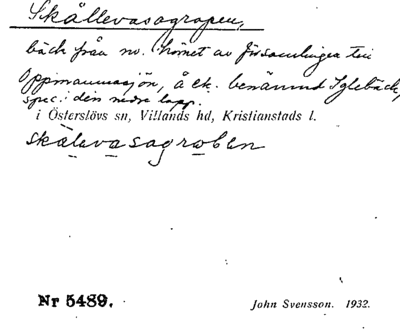 Skällevasagropen,
bäck från nv. hörnet av församlingen till
Oppmannasjön, å ek. benämnd Iglebäck,
spec. i den nedre lopp.
i Österslövs sn, Villands hd, Kristianstads l.
skälevasagroben
Nr 5489. John Svensson. 1932.